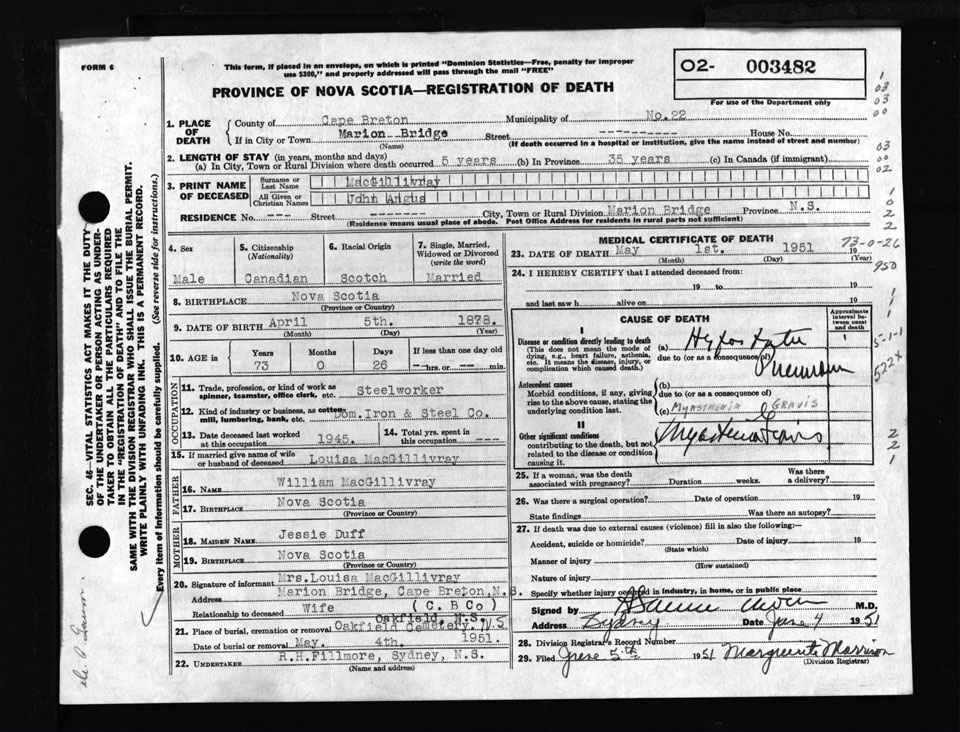 FORM 6
This form, if placed in an envelope, on which is printed "Dominion Statistics—Free, penalty for improper
use $300," and properly addressed will pass through the mail "FREE"
PROVINCE OF NOVA SCOTIA—REGISTRATION OF DEATH
O2- 003482
For use of the Department only
1. PLACE OF DEATH
County of Cape Breton Municipality of No.22
If in City or Town Marion Bridge Street House No.
(Name) (If death occurred in a hospital or institution, give the name instead of street and number)
2. LENGTH OF STAY (in years, months and days)
(a) In City, Town or Rural Division where death occurred 5 years (b) In Province 35 years (c) In Canada (if immigrant)
3. PRINT NAME OF DECEASED
Surname or Last Name MacGillivray
All Given or Christian Names Johh Angus
RESIDENCE No. --- Street ------- City, Town or Rural Division Marion Bridge Province N.S.
(Residence means usual place of abode. Post Office Address for residents in rural parts not sufficient)
4. Sex
Male
5. Citizenship (Nationality)
Canadian
6. Racial Origin
Scotch
7. Single, Married, Widowed or Divorced (write the word)
Married
8. BIRTHPLACE Nova Scotia
(Province or Country)
9. DATE OF BIRTH April 5th. 1878.
(Month) (Day) (Year)
10. AGE in Years Months Days If less than one day old
73 0 26 --hrs. or -- min.
OCCUPATION
11. Trade, profession, or kind of work as spinner, teamster, office clerk, etc. Steelworker
12. Kind of industry or business, as cotton-mill, lumbering, bank, etc. Dom.Iron & Steel Co.
13. Date deceased last worked at this occupation 1945.
14. Total yrs. spent in this occupation ---
15. If married give name of wife or husband of deceased Louisa MacGillivray
FATHER
16. NAME William MacGillivray
17. BIRTHPLACE Nova Scotia
(Province or Country)
MOTHER
18. MAIDEN NAME Jessie Duff
19. BIRTHPLACE Nova Scotia
(Province or Country)
20. Signature of informant Mrs.Louisa MacGillivray
Address Marion Bridge, Cape Breton,N.S.
Relationship to deceased Wife (C.B Co)
Oakfield, N.S.
21. Place of burial, cremation or removal Oakfield Cemetery. N.S
Date of burial or removal May. 4th. 1951.
22. UNDERTAKER R.H.Fillmore, Sydney, N.S.
(Name and address)
MEDICAL CERTIFICATE OF DEATH
23. DATE OF DEATH May 1st. 1951 19
(Month) (Day) (Year)
73-0-26
950
24. I HEREBY CERTIFY that I attended deceased from:
19 to 19
and last saw h alive on 19
CAUSE OF DEATH
Approximate interval between onset and death
I
Disease or condition directly leading to death
(This does not mean the mode of dying, e.g., heart failure, asthenia, etc. It means the disease, injury, or complication which caused death.)
(a) Hypostatic
due to (or as a consequence of)
Pneumonia
Antecedent causes
Morbid conditions, if any, giving rise to the above cause, stating the underlying condition last.
(b)
due to (or as a consequence of)
(c) MYASTHENIA GRAVIS
II
Other significant conditions
contributing to the death, but not related to the disease or condition causing it.
Myasthenia Gravis
522x
25. If a woman, was the death associated with pregnancy? Duration weeks. Was there a delivery?
26. Was there a surgical operation? Date of operation 19
State findings Was there an autopsy?
27. If death was due to external causes (violence) fill in also the following:—
Accident, suicide or homicide? Date of injury 19
(State which)
Manner of injury
(How sustained)
Nature of injury
Specify whether injury occurred in industry, in home, or in public place
Signed by M.D.
Address Sydney Date June 4 1951
28. Division Registrar's Record Number
29. Filed June 5th 1951 Marguerite Morrison
(Division Registrar)
SEC. 46—VITAL STATISTICS ACT MAKES IT THE DUTY
OF THE UNDERTAKER OR PERSON ACTING AS UNDER-
TAKER TO OBTAIN ALL THE PARTICULARS REQUIRED
IN THE "REGISTRATION OF DEATH" AND TO FILE THE
SAME WITH THE DIVISION REGISTRAR WHO SHALL ISSUE THE BURIAL PERMIT.
WRITE PLAINLY WITH UNFADING INK. THIS IS A PERMANENT RECORD.
Every item of information should be carefully supplied. (See reverse side for instructions.)
1
03
03
00
03
00
02
1
0
2
2
2
2
1